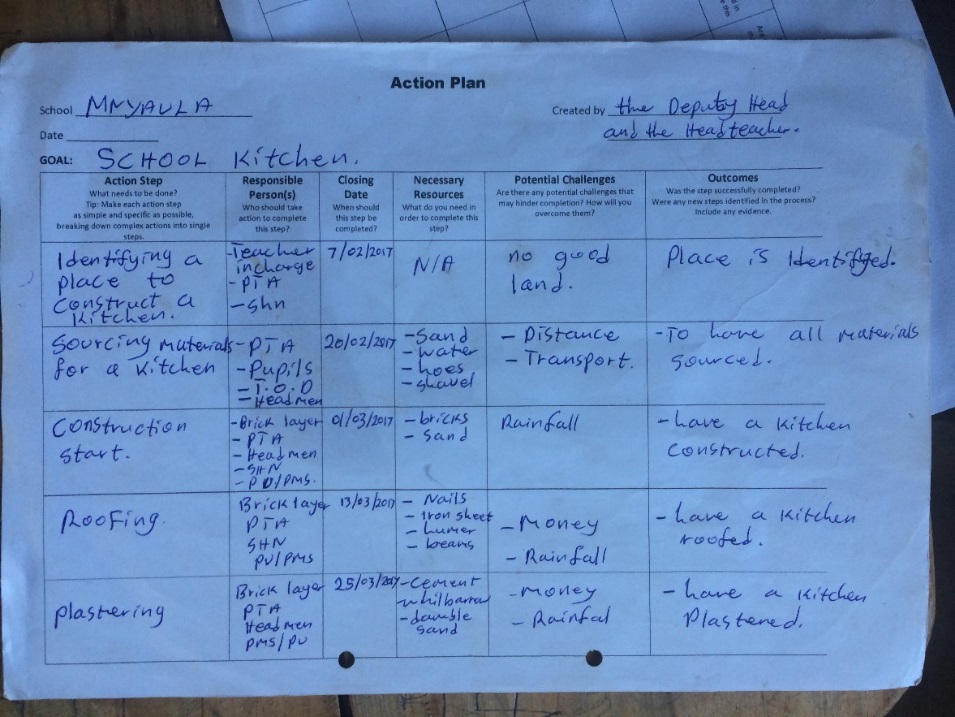 Action Plan
School MNYAULA
Created by the Deputy Head
and the Headteacher.
Date
GOAL: SCHOOL Kitchen.
Action Step
What needs to be done?
Tip: Make each action step
as simple and specific as possible,
breaking down complex actions into single
steps.
Responsible
Person(s)
Who should take
action to complete
this step?
Closing
Date
When should
this step be
completed?
Necessary
Resources
What do you need in
order to complete this
step?
Potential Challenges
Are there any potential challenges that
may hinder completion? How will you
overcome them?
Outcomes
Was the step successfully completed?
Were any new steps identified in the process?
Include any evidence.
Identifying a
place to
construct a
Kitchen.
-Teacher
incharge
- PTA
- Shn
7/02/2017
N/A
no good
land.
Place is Identified.
Sourcing materials
for a Kitchen
- PTA
- Pupils
- T.O.D
- Headmen
20/02/2017
- Sand
- water
- hoes
- shavel
- Distance
- Transport.
- To have all materials
sourced.
Construction
start.
- Brick layer
- PTA
- Headmen
- SHN
- PV/PMS.
01/03/2017
- bricks
- Sand
Rainfall
- have a Kitchen
constructed.
Roofing.
Brick layer
PTA
SHN
PV/PMS
13/03/2017
- Nails
- Iron sheet
- humer
- beams
- Money
- Rainfall
- have a Kitchen
roofed.
plastering
Brick layer
PTA
Headmen
PMS/PV
25/03/2017
- Cement
- whilbarrow
- damble
Sand
- money
- Rainfal
- have a Kitchen
Plastered.